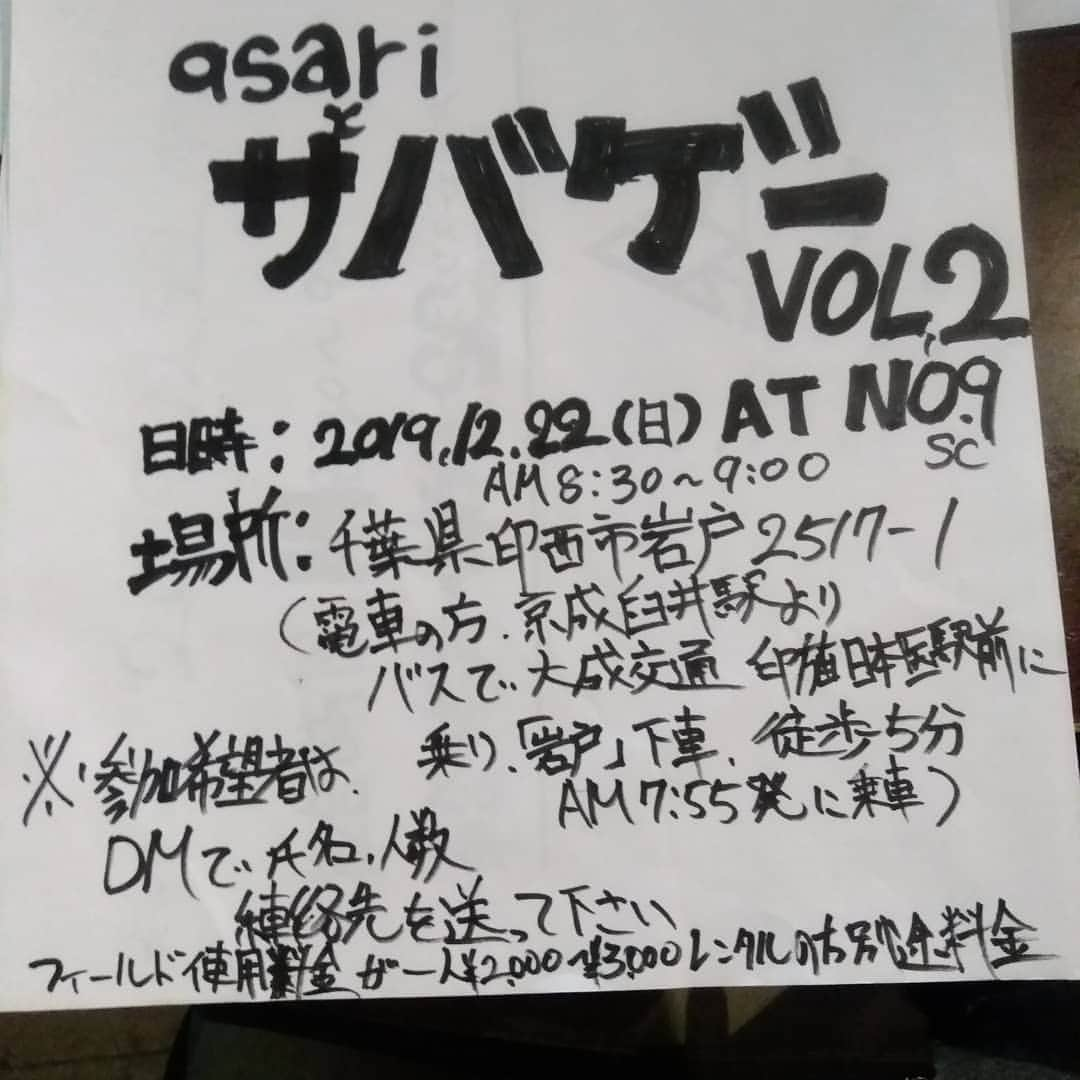 asari
サバゲー
VOL.2
日時:2019.12.22(日)AT NO.9
SC
AM8:30~9:00
場所:千葉県印西市岩戸2517-1
(電車の方、京成臼井駅より
バスで大成交通 印旛日本医駅前に
乗り、「岩戸」下車、徒歩5分
AM7:55発に乗車)
※参加希望者は、
DMで氏名、人数
連絡先を送って下さい
フィールド使用料金が一人¥2,000~¥3,000レンタルの方別途料金